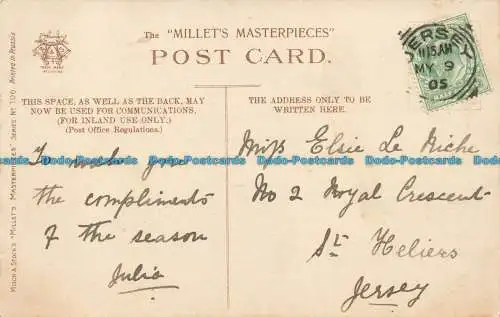 The "MILLET'S MASTERPIECES"
POST CARD.
JERSEY
11.15AM
MY 9
05
THIS SPACE, AS WELL AS THE BACK, MAY
NOW BE USED FOR COMMUNICATIONS.
(FOR INLAND USE ONLY.)
(Post Office Regulations.)
THE ADDRESS ONLY TO BE
WRITTEN HERE.
To wish you
the compliments
of the season
Julia
Miss Elsie Le Riche
No 2 Royal Crescent
St. Heliers
Jersey
MISCH & STOCK'S "MILLET'S MASTERPIECES" SERIES No 106 Printed in Prussia
Dodo-Postcards Dodo-Postcards Dodo-Postcards Dodo-Postcards